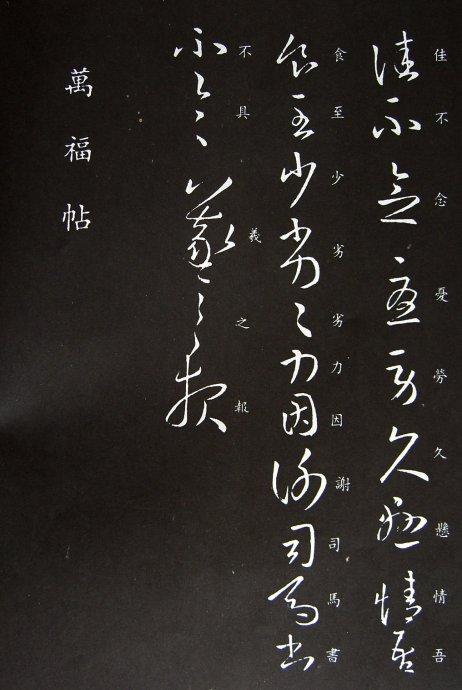 佳不念憂勞久懸情吾
食至少劣劣力因謝司馬書
不具義之報
萬福帖